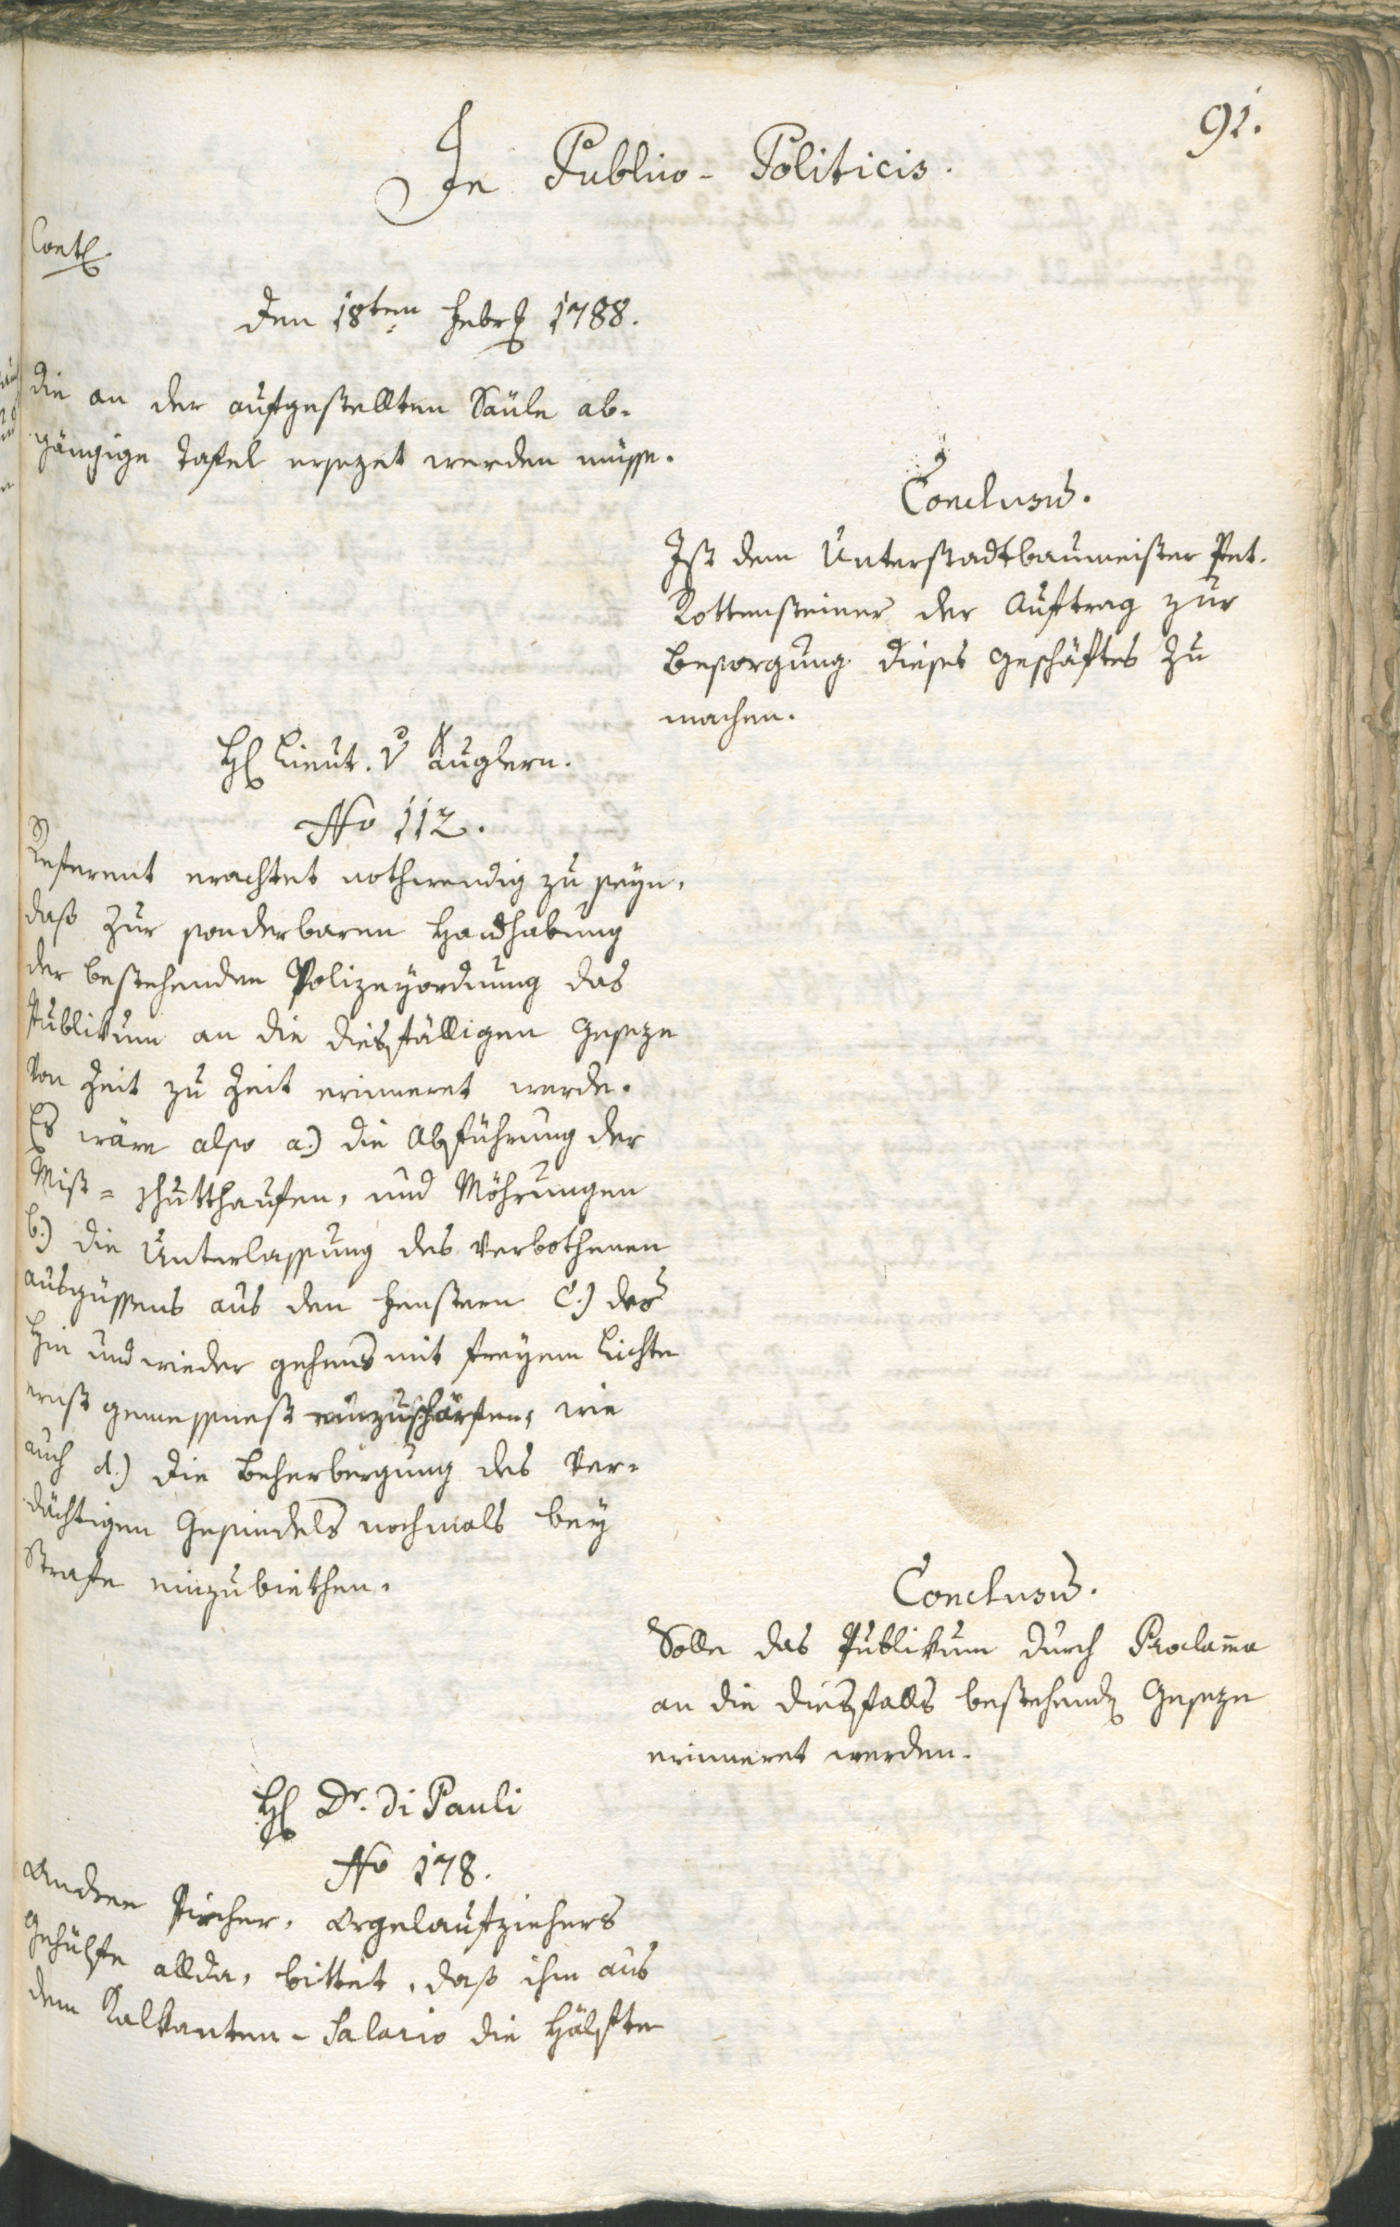 91.
In Publico-Politicis.
Cont.
den 18ten Febr. 1788.
die an der aufgestellten Säule ab-
gängige Tafel ersezet werden müsse.
Conclusum.
Ist dem Unterstadtbaumeister Pet.
Rottensteiner der Auftrag zur
Besorgung dieses Geschäftes zu
machen.
H. Lieut. v Kuglern.
No 112.
Referent erachtet nothwendig zu seyn,
daß zur sonderbaren Handhabung
der bestehenden Polizeyordnung das
Publikum an die diesfälligen Geseze
von Zeit zu Zeit erinneret werde.
Es wäre also a.) die Abführung der
Mist- Schutthaufen, und Möhrungen
b.) die Unterlassung des verbothenen
ausgüssens aus den Fenstern c.) des
hin und wieder gehens mit freyem Lichte
ernst gemessnest einzuschärfen, wie
auch d.) die Beherbergung des ver-
dächtigen Gesindels nochmals bey
Strafe einzubiethen.
Conclusum.
Solle das Publikum durch Proclama
an die diesfalls bestehend. Geseze
erinneret werden.
H. Dr. di Pauli
No 178.
Andree Pircher, Orgelaufziehers
Gehülfe allda, bittet, daß ihm aus
dem Kalkanten-Salario die Hälfte